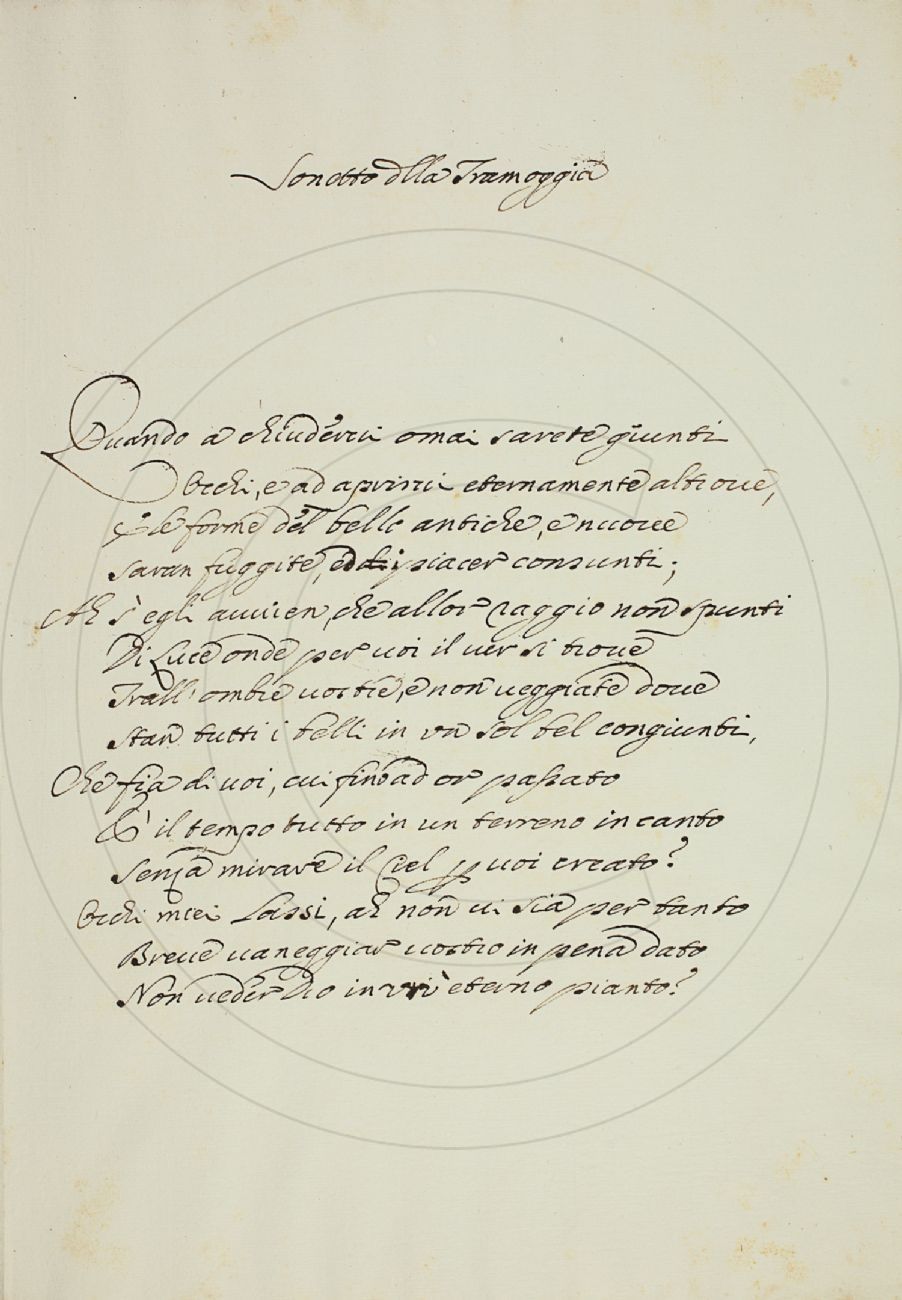 Sonetto dlla Tramoggia
Quando a chiuderui omai sarete giunti
Occhi, e ad aprirui eternamente altroue,
E le forme del bello antiche, e nuoue
saran fuggite, e di piacer consunti;
Ah s'egli auuien, che allor raggio non spunti
Di Luce onde per uoi il uer si troue
Trall'ombre uostre, e non ueggiate doue
stan tutti i belli in un sol bel congiunti,
Che fia di uoi, cui fin ad or passato
E' il tempo tutto in un terreno incanto
Senza mirare il Ciel p uoi creato?
Occhi miei Lassi, ah non ui sia per tanto
Breue uaneggiar uostro in pena dato
Non ueder Dio in un eterno pianto?